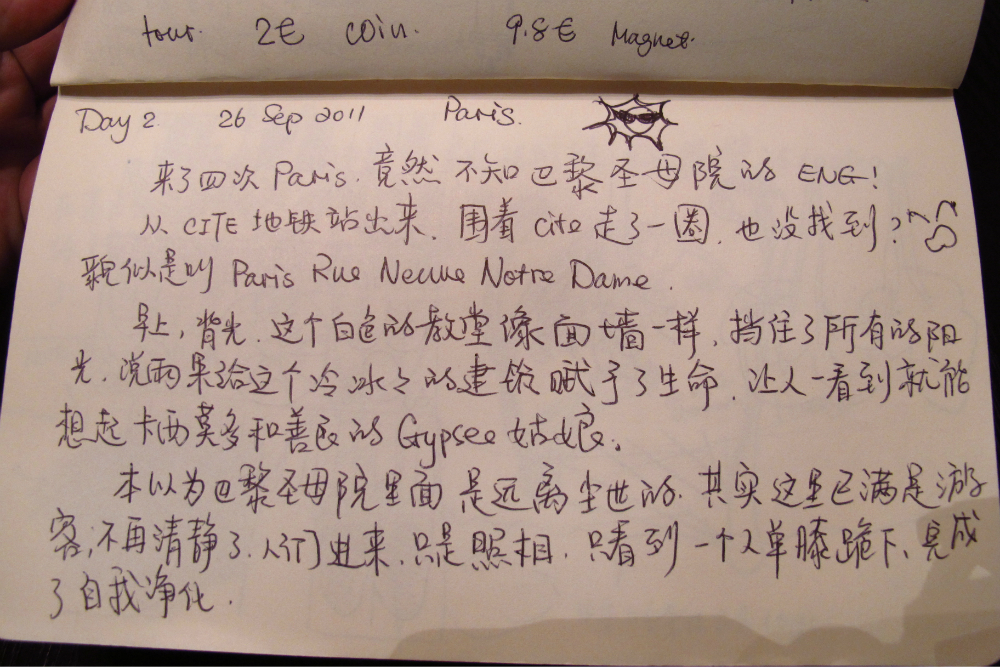 tour. 2€ coin. 9.8€ Magnet.
Day 2 26 Sep 2011 Paris.
来了四次 Paris. 竟然不知巴黎圣母院的 ENG!
从 CITE 地铁站出来, 围着 cite 走了一圈, 也没找到?
貌似是叫 Paris Rue Neuve Notre Dame.
早上, 背光. 这个白色的教堂像面墙一样, 挡住了所有的阳
光. 说雨果给这个冷冰冰的建筑赋予了生命, 让人一看到就能
想起卡西莫多和善良的 Gypsee 姑娘.
本以为巴黎圣母院里面是远离尘世的. 其实这里已满是游
客, 不再清静了. 人们进来, 只是照相. 只看到一个人单膝跪下, 完成
了自我净化.